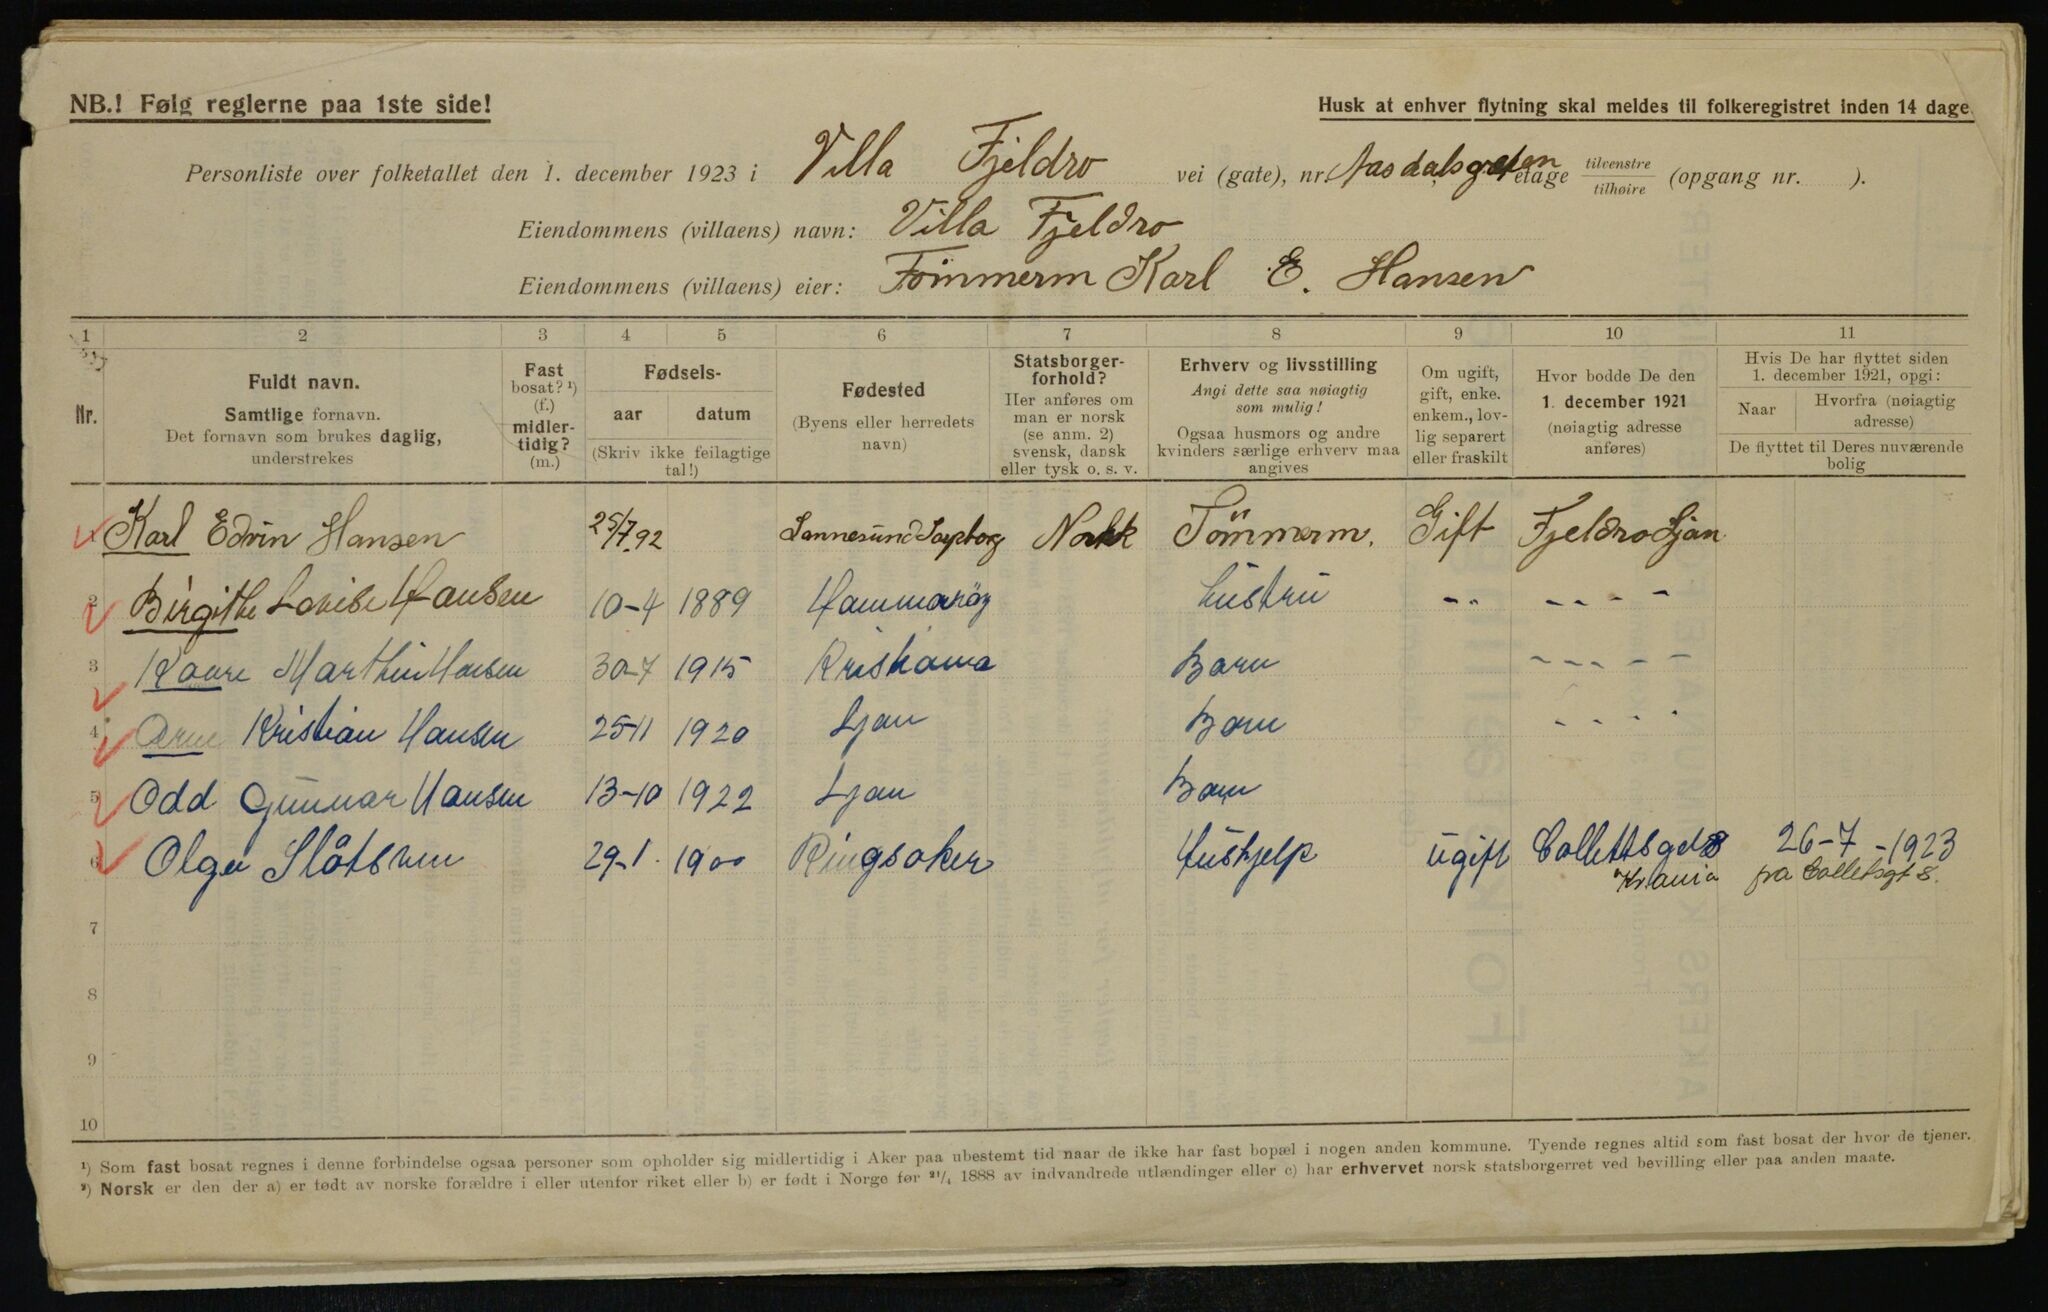 NB.! Følg reglerne paa 1ste side!
Husk at enhver flytning skal meldes til folkeregistret inden 14 dage.
Personliste over folketallet den 1. december 1923 i Villa Fjeldro vei (gate), nr. Aasdalsgaten etage tilvenstre tilhøire (opgang nr. ).
Eiendommens (villaens) navn: Villa Fjeldro
Eiendommens (villaens) eier: Tömmerm Karl E. Hansen
1 2 3 4 5 6 7 8 9 10 11
Nr.
Fuldt navn.
Samtlige fornavn.
Det fornavn som brukes daglig,
understrekes
Fast
bosat? ¹)
(f.)
midler-
tidig?
(m.)
Fødsels-
aar datum
(Skriv ikke feilagtige
tal!)
Fødested
(Byens eller herredets
navn)
Statsborger-
forhold?
Her anføres om
man er norsk
(se anm. 2)
svensk, dansk
eller tysk o. s. v.
Erhverv og livsstilling
Angi dette saa nøiagtig
som mulig!
Ogsaa husmors og andre
kvinders særlige erhverv maa
angives
Om ugift,
gift, enke.
enkem., lov-
lig separert
eller fraskilt
Hvor bodde De den
1. december 1921
(nøiagtig adresse
anføres)
Hvis De har flyttet siden
1. december 1921, opgi:
Naar
Hvorfra (nøiagtig
adresse)
De flyttet til Deres nuværende
bolig
Karl Edvin Hansen 25/7.92 Sannesund Sarpborg Norsk Tömmerm. Gift Fjeldro Ljan
2 Birgithe Lovise Hansen 10-4 1889 Hammaröy Hustru -„- - - - -
3 Kaare Marthin Hansen 30-7 1915 Kristiania Barn - - - - -
4 Arne Kristian Hansen 25-11 1920 Ljan Barn - - - -
5 Odd Gunnar Hansen 13-10 1922 Ljan Barn
6 Olga Slåtsveen 29-1. 1900 Ringsaker Hushjelp ugift Collettsgt 8 26-7-1923
Kr.ania fra Colletsgt 8.
7
8
9
10
¹) Som fast bosat regnes i denne forbindelse ogsaa personer som opholder sig midlertidig i Aker paa ubestemt tid naar de ikke har fast bopæl i nogen anden kommune. Tyende regnes altid som fast bosat der hvor de tjener.
²) Norsk er den der a) er født av norske forældre i eller utenfor riket eller b) er født i Norge før ²¹/₄ 1888 av indvandrede utlændinger eller c) har erhvervet norsk statsborgerret ved bevilling eller paa anden maate.